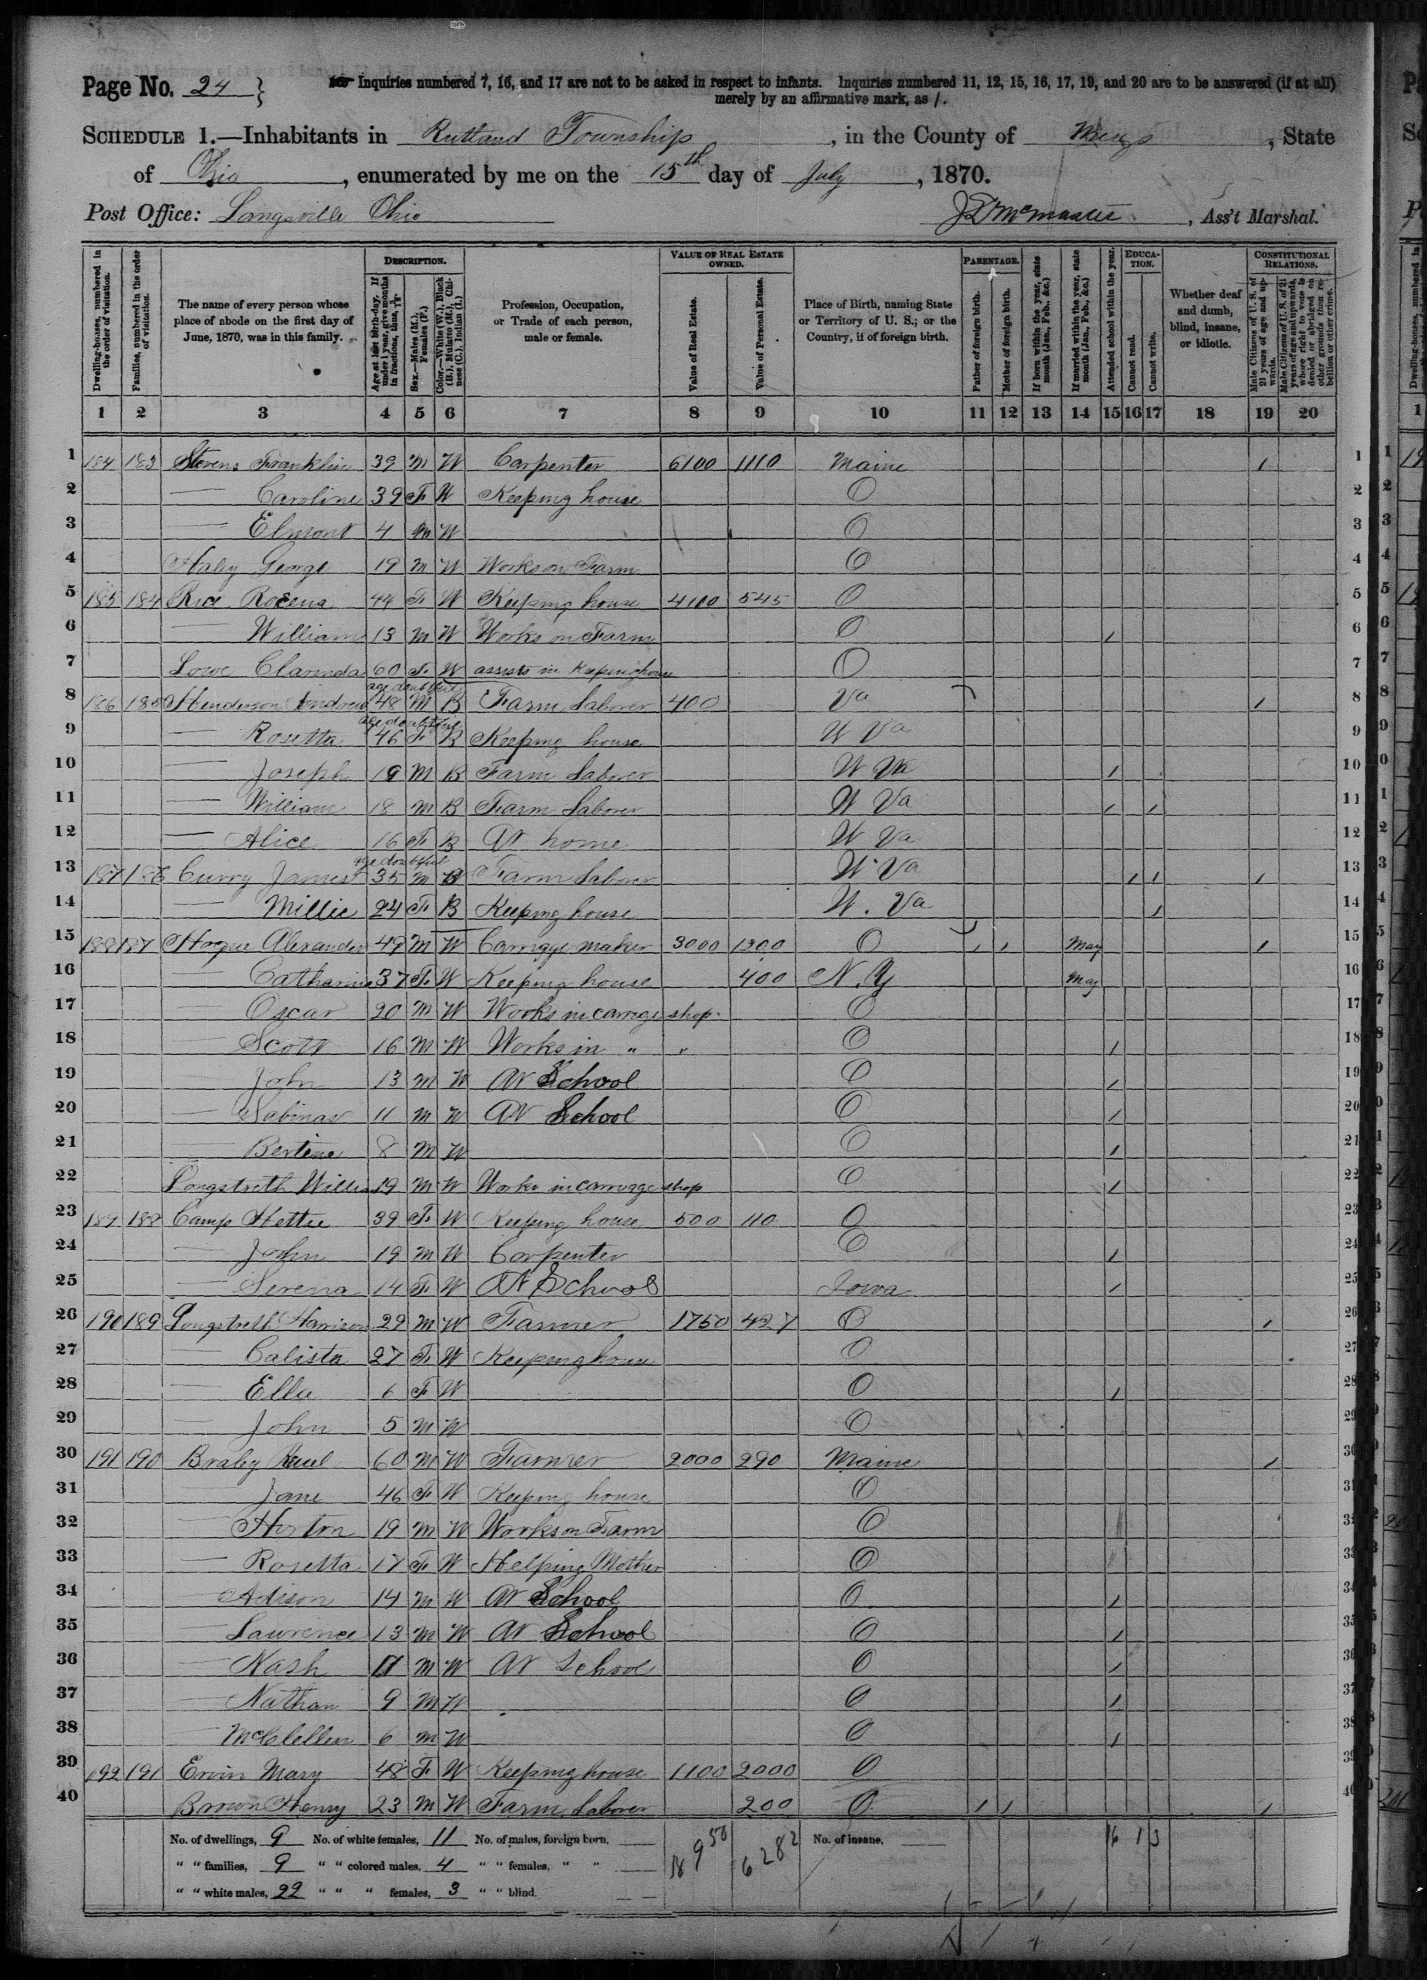 Page No. 24
Inquiries numbered 7, 16, and 17 are not to be asked in respect to infants. Inquiries numbered 11, 12, 15, 16, 17, 19, and 20 are to be answered (if at all)
merely by an affirmative mark, as /.
SCHEDULE 1.—Inhabitants in Rutland Township, in the County of Meigs, State
of Ohio, enumerated by me on the 15th day of July, 1870.
Post Office: Langsville Ohio J D McMaster, Ass't Marshal.
Dwelling-houses, numbered in the order of visitation.
Families, numbered in the order of visitation.
The name of every person whose place of abode on the first day of June, 1870, was in this family.
DESCRIPTION.
Age at last birth-day. If under 1 year, give months in fractions, thus, 3/12.
Sex.—Males (M.), Females (F.)
Color.—White (W.), Black (B.), Mulatto (M.), Chinese (C.), Indian (I.)
Profession, Occupation, or Trade of each person, male or female.
VALUE OF REAL ESTATE OWNED.
Value of Real Estate.
Value of Personal Estate.
Place of Birth, naming State or Territory of U. S.; or the Country, if of foreign birth.
PARENTAGE.
Father of foreign birth.
Mother of foreign birth.
If born within the year, state month (Jan., Feb., &c.)
If married within the year, state month (Jan., Feb., &c.)
Attended school within the year.
EDUCATION.
Cannot read.
Cannot write.
Whether deaf and dumb, blind, insane, or idiotic.
CONSTITUTIONAL RELATIONS.
Male Citizens of U. S. of 21 years of age and upwards.
Male Citizens of U. S. of 21 years of age and upwards, whose right to vote is denied or abridged on other grounds than rebellion or other crime.
1 2 3 4 5 6 7 8 9 10 11 12 13 14 15 16 17 18 19 20
1 184 183 Stevens Franklin 39 M W Carpenter 6100 1110 Maine / 1
2 — Caroline 39 F W Keeping house O 2
3 — Elmont 4 M W O 3
4 Haley George 19 M W Works on Farm O 4
5 185 184 Rice Roxena 44 F W Keeping house 4100 545 O 5
6 — William 13 M W Works on Farm O / 6
7 Lowe Clarinda 60 F W assists in Keeping house O 7
age doubtful
8 186 185 Henderson Andrew 48 M B Farm Laborer 400 Va / 8
age doubtful
9 — Rosetta 46 F B Keeping house W Va 9
10 — Joseph 19 M B Farm Laborer W Va / 10
11 — William 18 M B Farm Laborer W Va / / 11
12 — Alice 16 F B At home W Va 12
age doubtful
13 187 186 Curry James 35 M B Farm Laborer W Va / / / 13
14 Millie 24 F B Keeping house W. Va / 14
15 188 187 Hogue Alexander 49 M W Carriage maker 3000 1300 O / / May / 15
16 — Catharine 37 F W Keeping house 400 N. Y May 16
17 — Oscar 20 M W Works in carriage shop O 17
18 — Scott 16 M W Works in " " O / 18
19 — John 13 M W At School O / 19
20 — Sabinas 11 M W At School O / 20
21 — Bertina 8 M W O / 21
22 Longstreth William 19 M W Works in carriage shop O / 22
23 189 188 Camp Hettie 39 F W Keeping house 500 110 O 23
24 — John 19 M W Carpenter O / 24
25 — Serena 14 F W At School Iowa / 25
26 190 189 Longstreth Harrison 29 M W Farmer 1750 427 O / 26
27 — Calista 27 F W Keeping house O 27
28 — Ella 6 F W O / 28
29 — John 5 M W O 29
30 191 190 Braley 60 M W Farmer 2000 290 Maine / 30
31 — Jane 46 F W Keeping house O 31
32 — Horton 19 M W Works on Farm O 32
33 — Rosetta 17 F W Helping Mother O 33
34 — Adison 14 M W At School O / 34
35 — Lawrence 13 M W At School O / 35
36 — Nash 11 M W At School O / 36
37 — Nathan 9 M W O / 37
38 — McClellen 6 M W O / 38
39 192 191 Ervin Mary 48 F W Keeping house 1100 2000 O 39
40 Brown Henry 23 M W Farm Laborer 200 O / / / 40
No. of dwellings, 9 No. of white females, 11 No. of males, foreign born, — 18950 6282 No. of insane, 16 1 3
" " families, 9 " " colored males, 4 " " females, " " —
" " white males, 22 " " " females, 3 " " blind. —